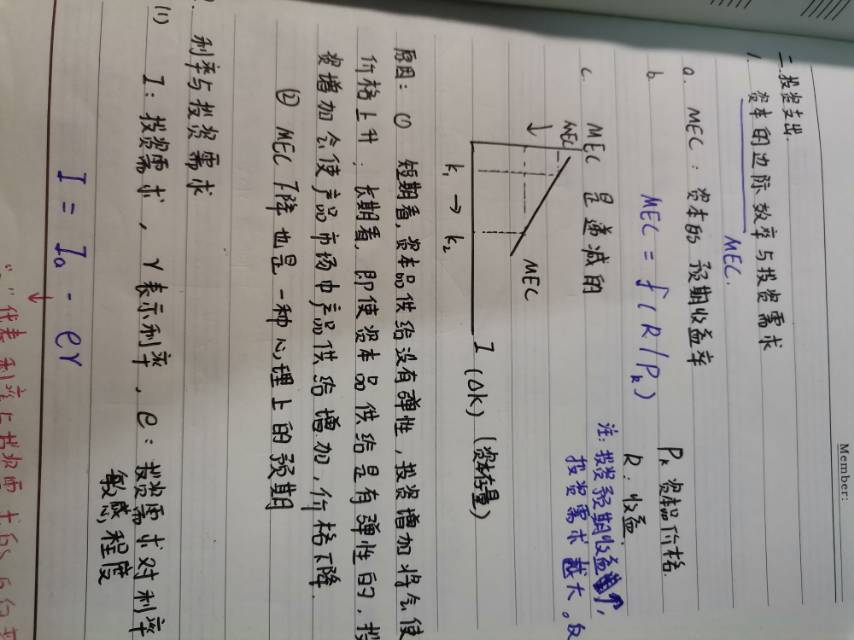 Member:
二.投资支出.
1. 资本的边际效率与投资需求
MEC.
a. MEC：资本的预期收益率
b MEC = f(R/Pk)
Pk 资本品价格.
R：收益.
c. MEC 是递减的
注：投资预期收益
投资需求越大。反
MEC
MEC
k1 → k2
I (Δk) (资本存量)
原因：① 短期看，资本品供给没有弹性，投资增加将会使
价格上升；长期看，即使资本品供给是有弹性的，投
资增加会使产品市场中产品供给增加，价格下降.
② MEC下降也是一种心理上的预期
利率与投资需求
(1) I：投资需求，r表示利率，e：投资需求对利率
敏感程度
I = I0 - er
"-"代表利率与投资需求的